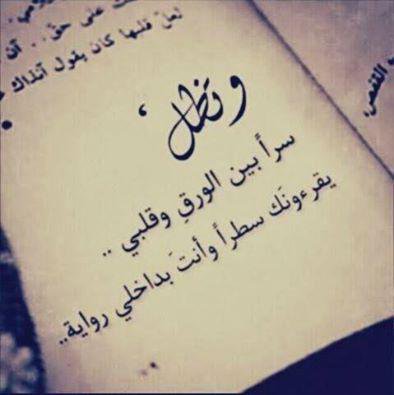 على حق .. أن
لعل قلبها كان يقول آنذاك
القفص،
وتظل ،
سراً بين الورقِ وقلبي ..
يقرءونَك سطراً وأنتَ بداخلي رواية..